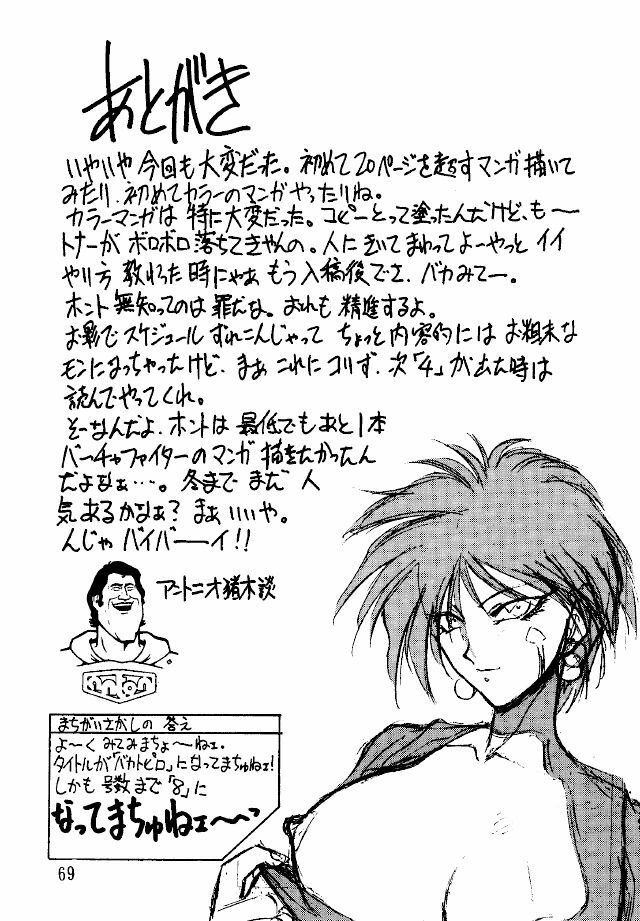 あとがき
いやいや今回も大変だった。初めて20ページを超すマンガ描いて
みたり、初めてカラーのマンガやったりね。
カラーマンガは特に大変だった。コピーとって塗ったんだけど、も〜
トナーがボロボロ落ちてきやんの。人にきいてまわってよーやっとイイ
やり方教わった時にゃあもう入稿後でさ、バカみてー。
ホント無知ってのは罪だな。おれも精進するよ。
お影でスケジュールずれこんじゃってちょっと内容的にはお粗末な
モンになっちゃったけど、まぁこれにコリず、次「4」が出た時は
読んでやってくれ。
そーなんだよ、ホントは最低でもあと1本
バーチャファイターのマンガ描きたかったん
だよなぁ…。冬までまだ人
気あるかなぁ?まぁいいや。
んじゃバイバーイ!!
アントニオ猪木談
まちがいさがしの答え
よ〜くみてみまちょ〜ねェ。
タイトルが「バカトピロ」になってまちゅねェ!
しかも号数まで「8」に
なってまちゅねェ〜〜っ
69